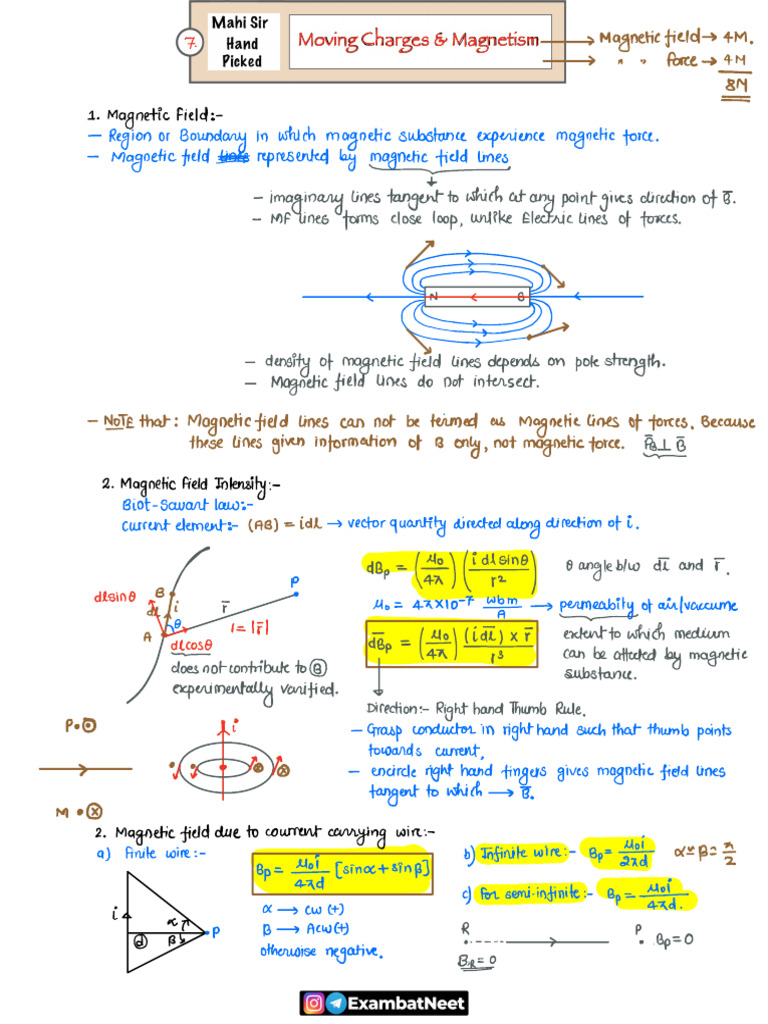 7.
Mahi Sir
Hand
Picked
Moving Charges & Magnetism
Magnetic field → 4M.
" " force → 4M
8M
1. Magnetic Field:-
— Region or Boundary in which magnetic substance experience magnetic force.
— Magnetic field lines represented by magnetic field lines
— imaginary lines tangent to which at any point gives direction of B̄.
— MF lines forms close loop, unlike Electric lines of forces.
N S
— density of magnetic field lines depends on pole strength.
— Magnetic field lines do not intersect.
— NOTE that: Magnetic field lines can not be termed as Magnetic lines of forces. Because
these lines given information of B only, not magnetic force. F̄B ⊥ B̄
2. Magnetic Field Intensity:-
Biot-Savart law:-
Current element:- (AB) = idl → vector quantity directed along direction of i.
dBp = (μ₀/4π) (i dl sinθ / r²)
θ angle b/w d̄l and r̄.
μ₀ = 4π×10⁻⁷ wbm/A → permeabity of air/vaccume
d̄Bp = (μ₀/4π) (i d̄l) × r̄ / r³
extent to which medium
can be affected by magnetic
substance.
B
P
dlsinθ
dl
i
r̄
θ
A
r = |r̄|
dlcosθ
does not contribute to B
experimentally varified.
Direction:- Right hand Thumb Rule.
— Grasp conductor in right hand such that thumb points
towards current,
— encircle right hand fingers gives magnetic field lines
tangent to which → B̄.
P • ⊙
M • ⊗
i
2. Magnetic field due to courrent carrying wire:-
a) Finite wire:-
Bp = μ₀i/4πd [sinα + sinβ]
α → cw (+)
β → Acw (+)
otherwise negative.
i
α
d
β
P
b) Infinite wire:- Bp = μ₀i/2πd α = β = π/2
c) For semi-infinite:- Bp = μ₀i/4πd.
R
P
Bp = 0
BR = 0
ExambatNeet